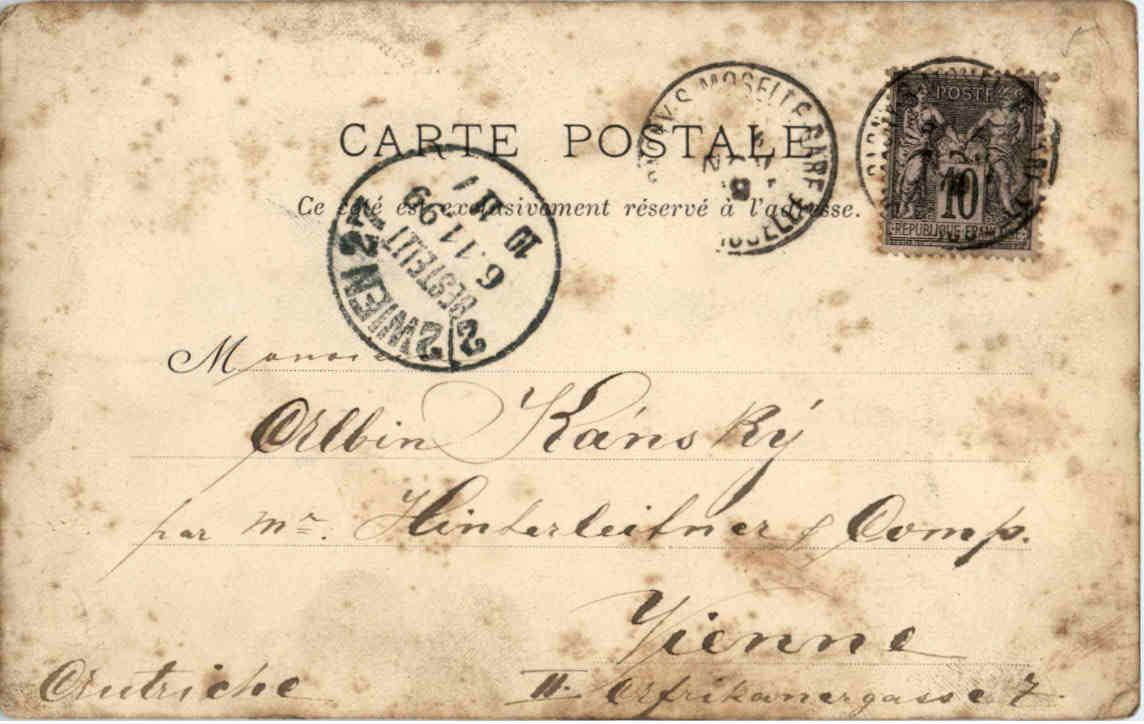 CARTE POSTALE
Ce côté est exclusivement réservé à l'adresse.
MOSELLE GARE
MOSELLE
POSTE
10
REPUBLIQUE FRANÇAISE
WIEN 2
BESTELLT
6.11.99
10
Monsieur
Albin Kánský
par Mr. Hinterleitner & Comp.
Vienne
Autriche II. Afrikanergasse 7.